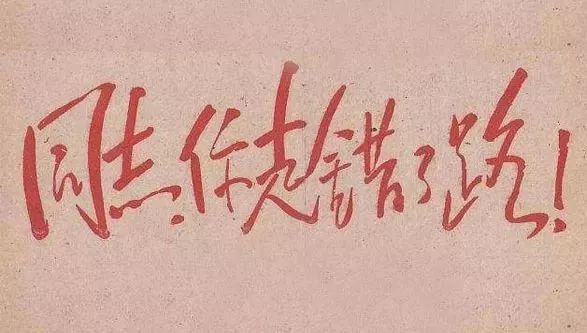 同志,你走错了路!